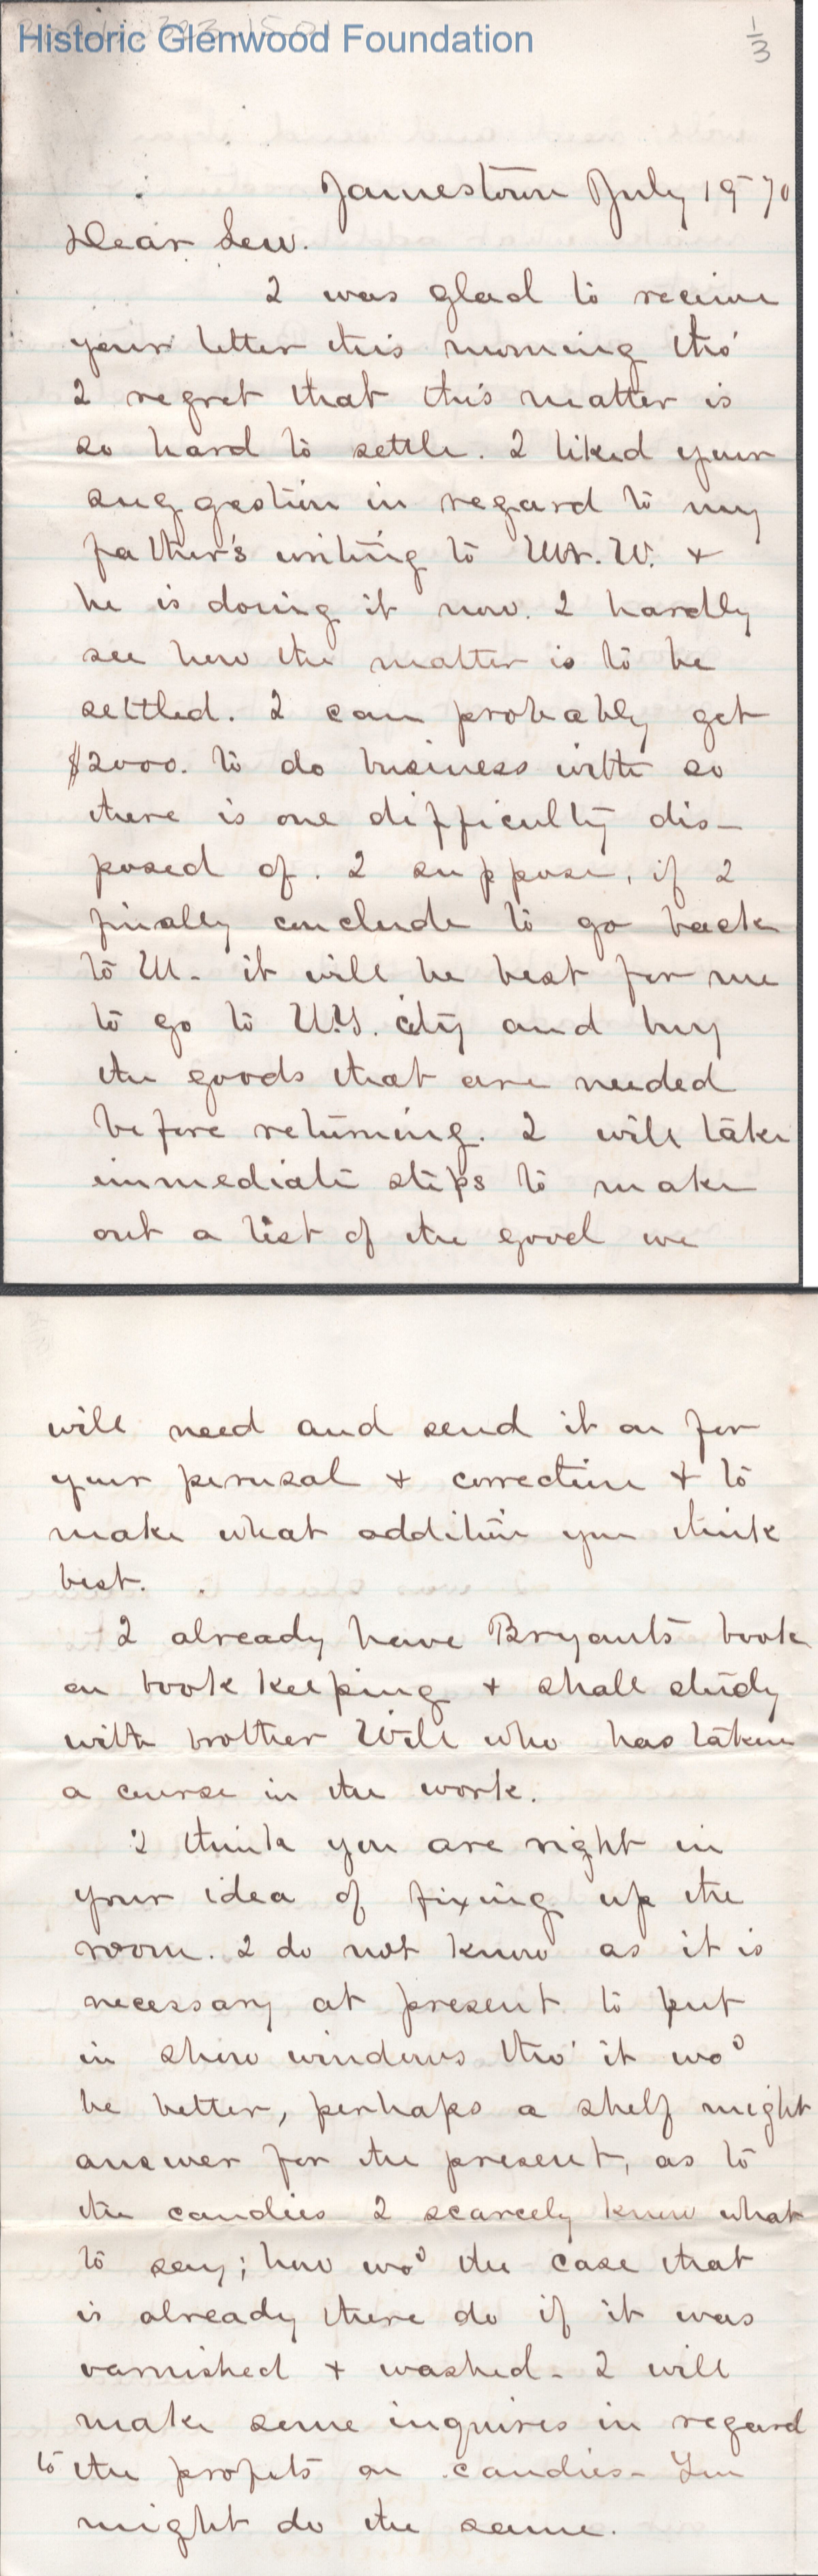 Historic Glenwood Foundation
1/3
Jamestown July 19 70
Dear Lew.
I was glad to receive
your letter this morning tho'
I regret that this matter is
so hard to settle. I liked your
suggestion in regard to my
father's writing to Mr. W. +
he is doing it now. I hardly
see how the matter is to be
settled. I can probably get
$2000. to do business with so
there is one difficulty dis-
posed of. I suppose, if I
finally conclude to go back
to M- it will be best for me
to go to N.Y. city and buy
the goods that are needed
before returning. I will take
immediate steps to make
out a list of the good we
will need and send it on for
your perusal + correction + to
make what addition you think
best.
I already have Bryants book
on book keeping + shall study
with brother Will who has taken
a course in the work.
I think you are right in
your idea of fixing up the
room. I do not know as it is
necessary at present to put
in show windows tho' it wod
be better, perhaps a shelf might
answer for the present, as to
the candies I scarcely know what
to say; how wod the case that
is already there do if it was
varnished + washed- I will
make some inquires in regard
to the profits on candies- You
might do the same.